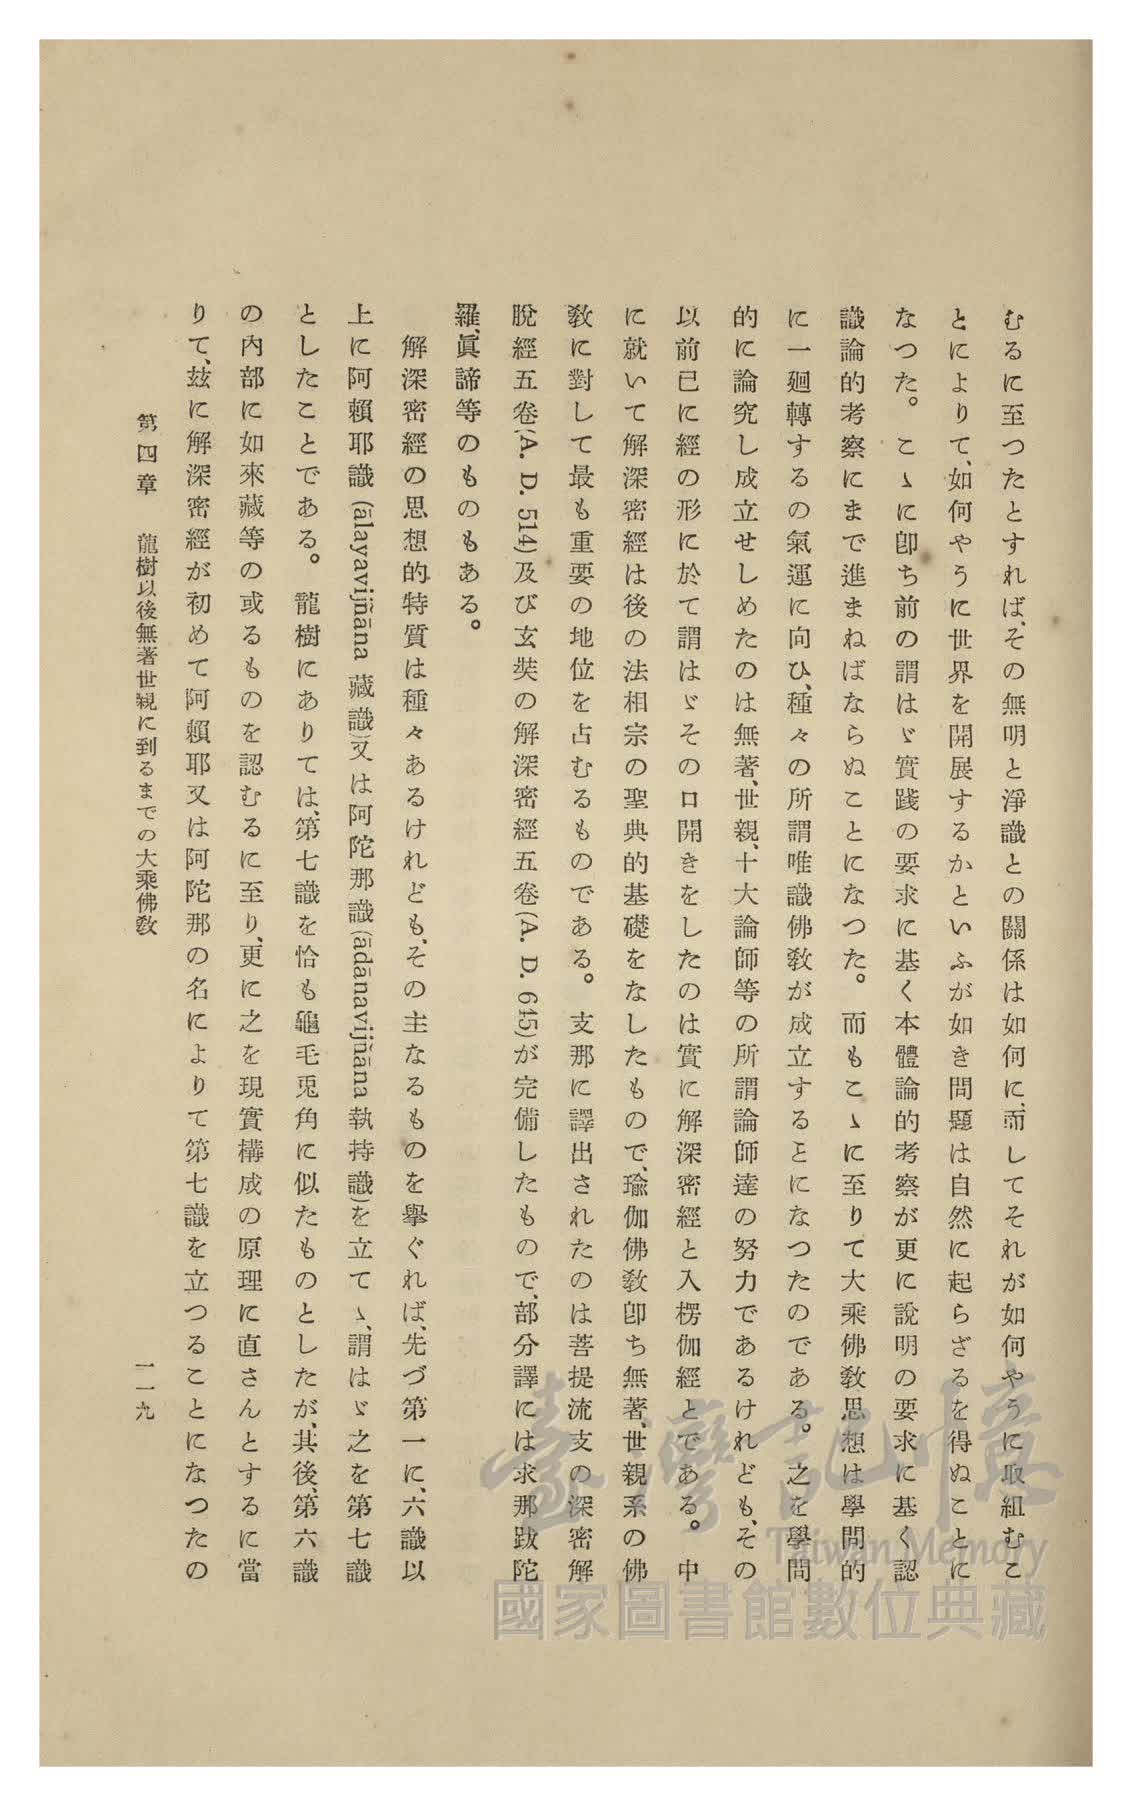 むるに至つたとすれば、その無明と淨識との關係は如何に、而してそれが如何やうに取組むこ
とによりて、如何やうに世界を開展するかといふが如き問題は自然に起らざるを得ぬことに
なつた。こゝに卽ち前の謂はゞ實踐の要求に基く本體論的考察が更に說明の要求に基く認
識論的考察にまで進まねばならぬことになつた。而もこゝに至りて大乘佛敎思想は學問的
に一廻轉するの氣運に向ひ、種々の所謂唯識佛敎が成立するとになつたのである。之を學問
的に論究し成立せしめたのは無著、世親、十大論師等の所謂論師達の努力であるけれども、その
以前已に經の形に於て謂はゞその口開きをしたのは實に解深密經と入楞伽經とである。中
に就いて解深密經は後の法相宗の聖典的基礎をなしたもので、瑜伽佛敎卽ち無著、世親系の佛
敎に對して最も重要の地位を占むるものである。支那に譯出されたのは菩提流支の深密解
脫經五卷(A. D. 514)及び玄奘の解深密經五卷(A. D. 645)が完備したもので、部分譯には求那跋陀
羅、眞諦等のものもある。
解深密經の思想的特質は種々あるけれども、その主なるものを擧ぐれば、先づ第一に、六識以
上に阿賴耶識(ālayavijñāna 藏識)又は阿陀那識(ādānavijñāna 執持識)を立てゝ、謂はゞ之を第七識
としたことである。龍樹にありては、第七識を恰も龜毛兎角に似たものとしたが、其後、第六識
の內部に如來藏等の或るものを認むるに至り、更に之を現實構成の原理に直さんとするに當
りて、玆に解深密經が初めて阿賴耶又は阿陀那の名によりて第七識を立つることになつたの
第四章 龍樹以後無著世親に到るまでの大乘佛敎
一一九
臺灣記憶
Taiwan Memory
國家圖書館數位典藏